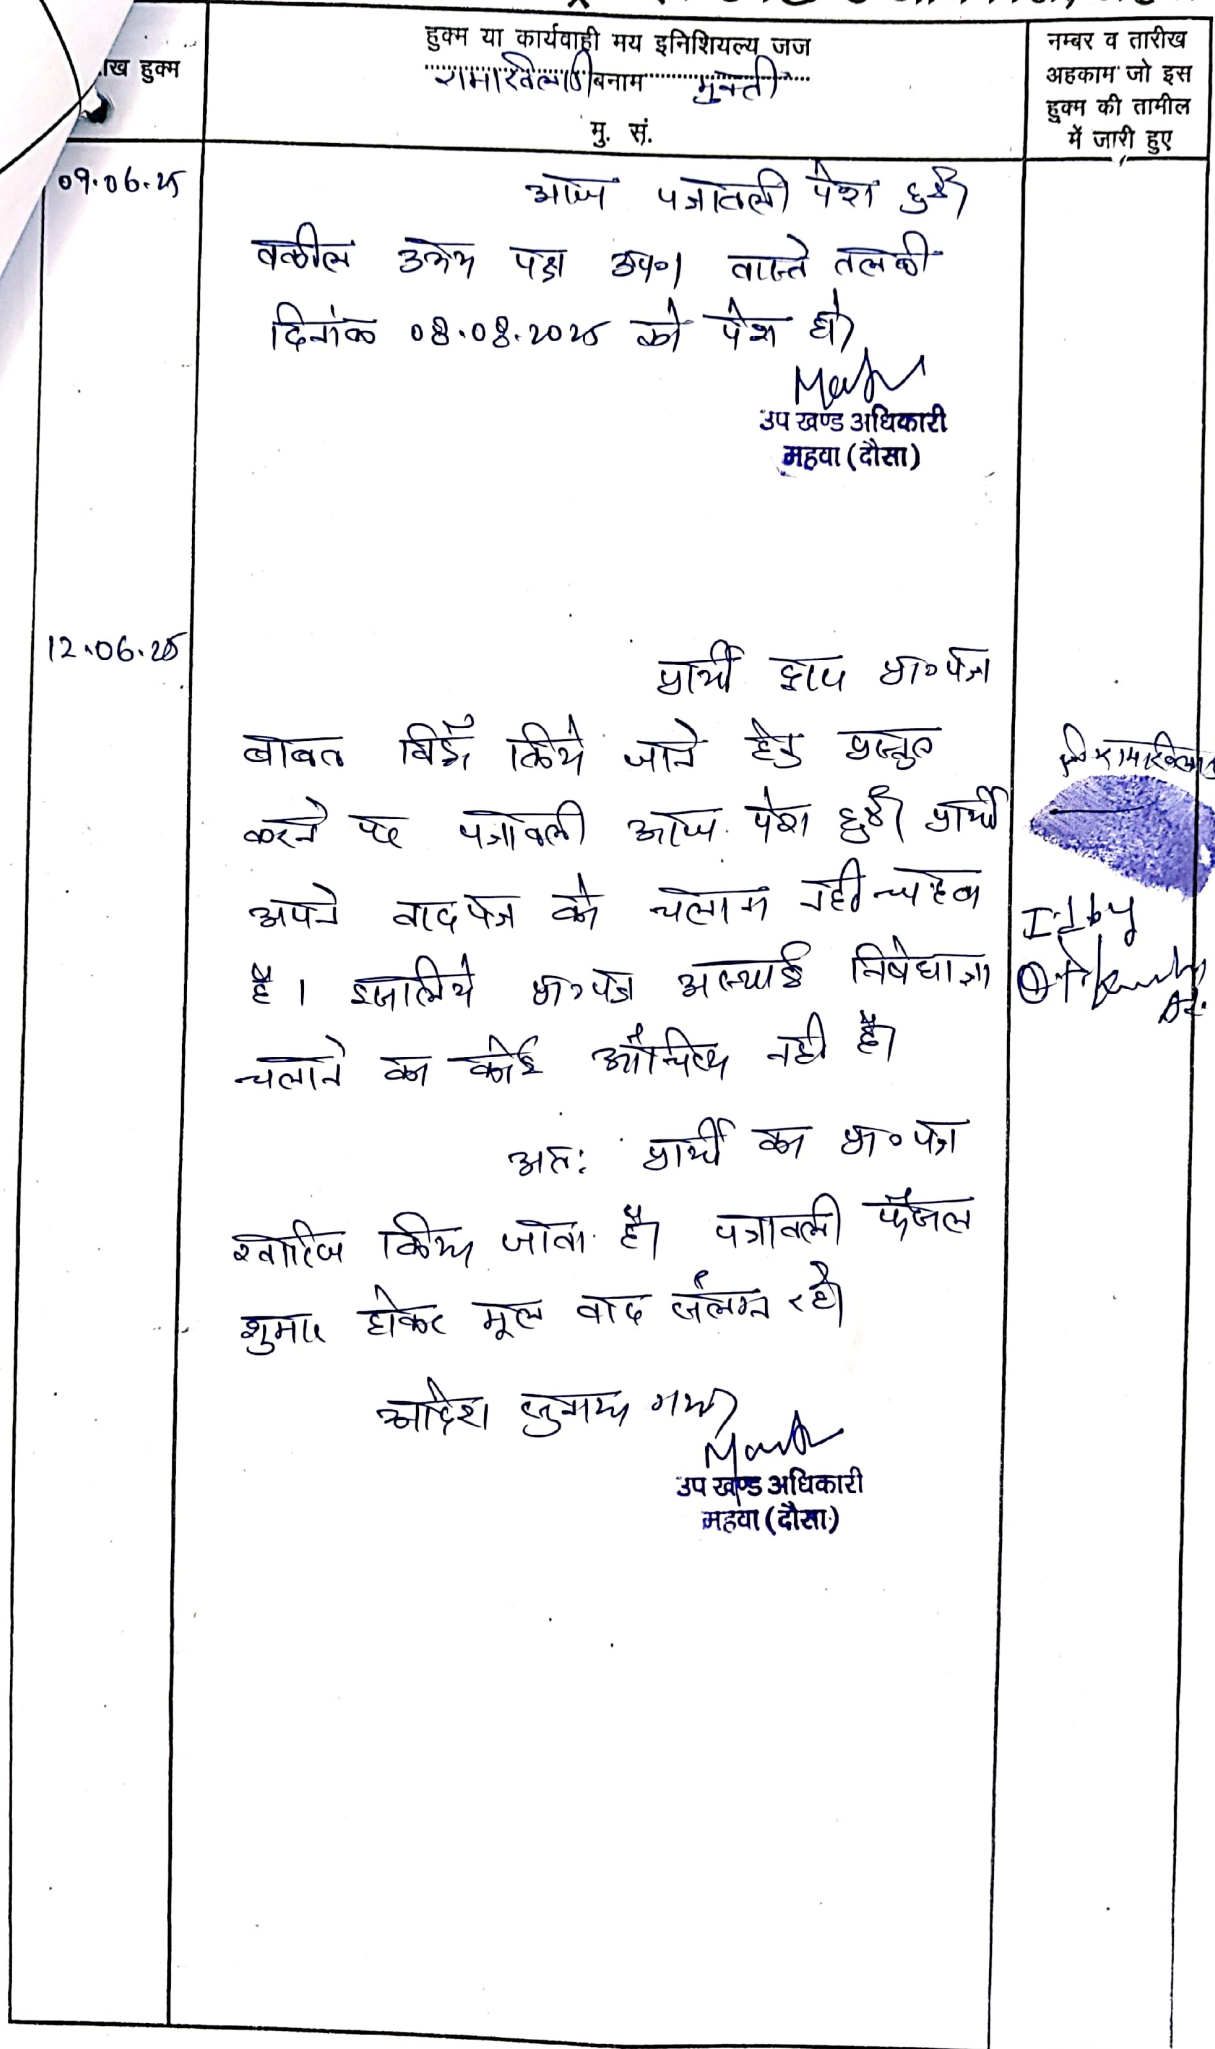 हुक्म या कार्यवाही मय इनिशियल्य जज
नम्बर व तारीख
अहकाम जो इस
हुक्म की तामील
में जारी हुए
हुक्म
बनाम
मु. सं.
09.06.25
आज पत्रावली पेश हुई।
वकील उभय पक्ष उप०। वास्ते तलबी
दिनांक 08.08.2025 को पेश हो।
उप खण्ड अधिकारी
महवा (दौसा)
12.06.25
प्रार्थी द्वारा प्रा०पत्र
बाबत विड्रॉ किये जाने हेतु प्रस्तुत
करने पर पत्रावली आज पेश हुई। प्रार्थी
अपने वादपत्र को चलाना नही चाहता
है। इसलिये प्रा०पत्र अस्थाई निषेधाज्ञा
चलाने का कोई औचित्य नही है।
अतः प्रार्थी का प्रा०पत्र
खारिज किया जाता है। पत्रावली फैसल
शुमार होकर मूल वाद संलग्न रहे।
आदेश सुनाया गया।
उप खण्ड अधिकारी
महवा (दौसा)
I.d by